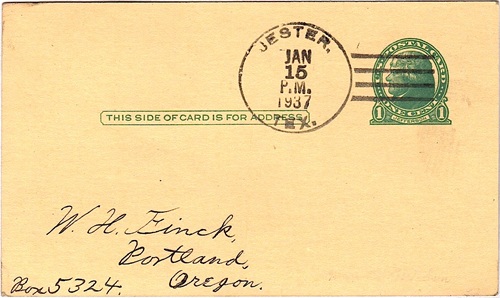 JESTER.
JAN
15
P.M.
1937
TEX.
U.S. POSTAL CARD
1 ONE CENT 1
JEFFERSON
THIS SIDE OF CARD IS FOR ADDRESS
W. H. Finck,
Portland,
Box 5324. Oregon.